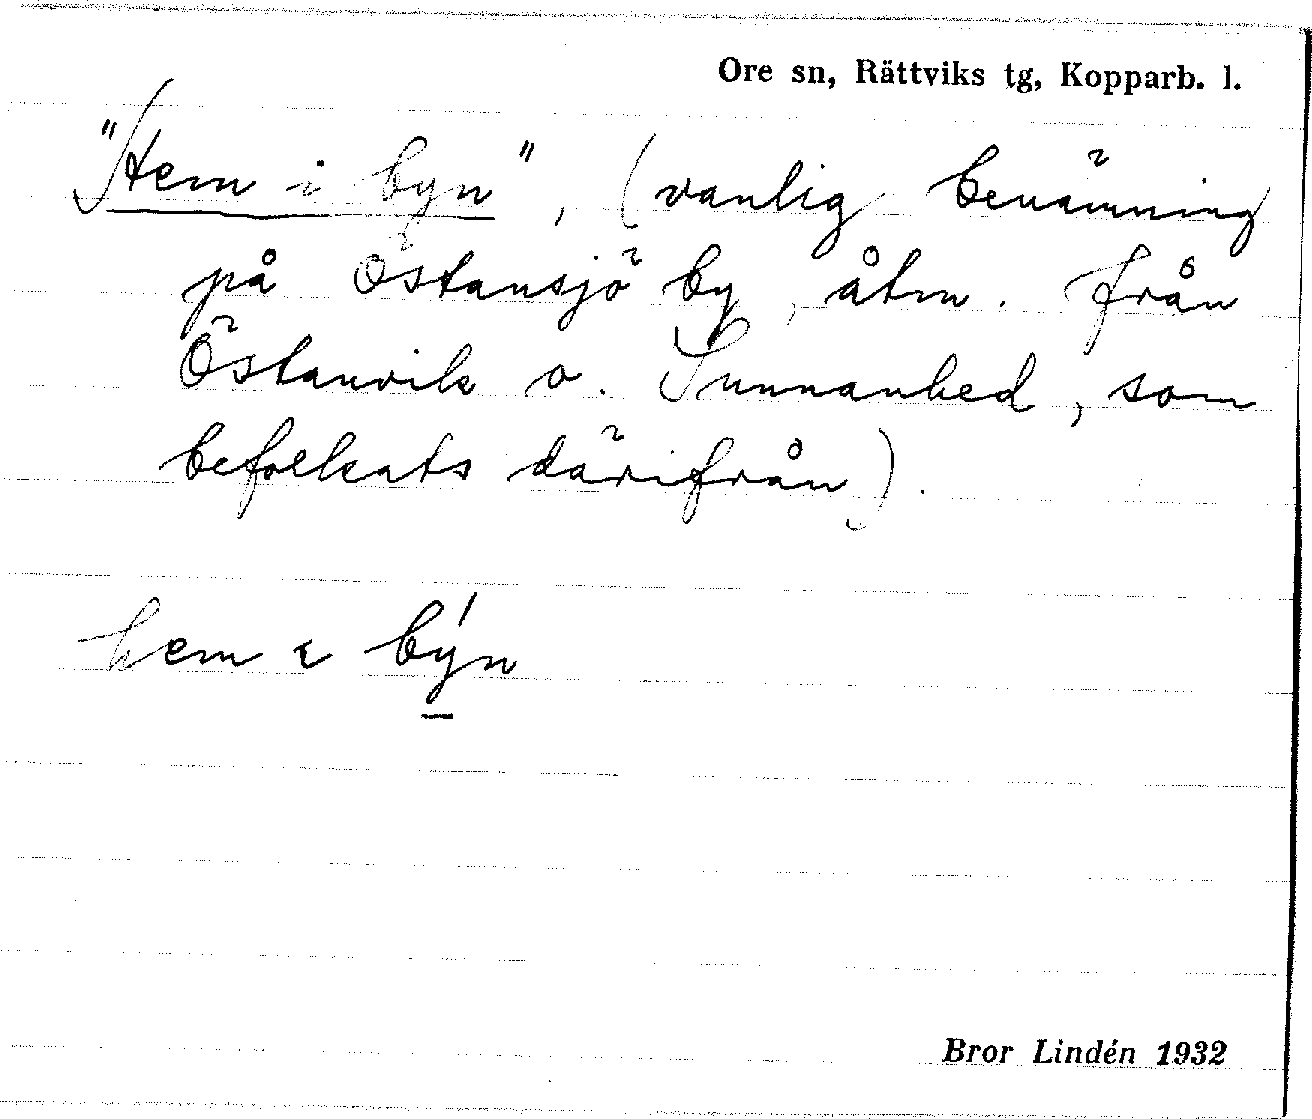 Ore sn, Rättviks tg, Kopparb. l.
"Hem i byn", (vanlig benämning
på Östansjö by, åtm. från
Östanvik o. Sunnanhed, som
befolkats därifrån).
hem ɩ býn
Bror Lindén 1932